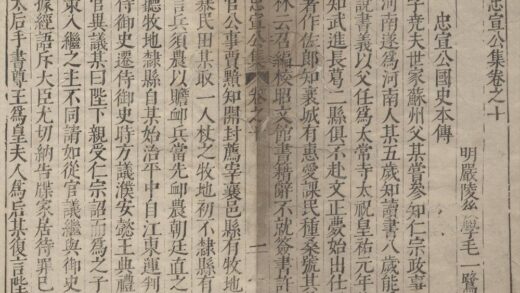 忠宣公集卷之十
明嚴陵學毛一鷺
忠宣公國史本傳
字尭夫世家蘇州父某嘗參知仁宗政事
河南遂爲河南人某五歲知讀書八歲能
說書義以父任爲太常寺太祝皇祐元年
知武進長葛二縣俱不赴文正薨始出仕
著作佐郎知襄城有惠愛課民種桑號其
林云召編校昭文館書籍辭不就簽書許
忠宣公集 卷之十 二
官公事賈黯知開封薦宰襄邑縣有牧地
暴民田其取一人杖之牧地初不隷縣有
言兵須農以贍卹兵當先卹農朝廷直之
聽牧地隷縣自其始治平中自江東運判
侍御史遷待御史時方議濮安懿王典禮
官與議其曰陛下親受仁宗詔而爲之子
東入繼之主不同請如從官議繼與御史
據經語斥大臣尤切納告牒家居待罪已
太后手書尊王爲皇夫人爲后其復言陛